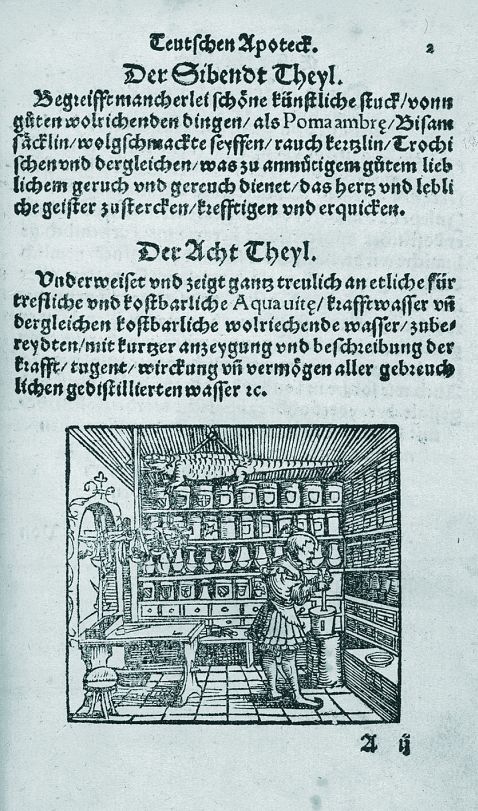 Teutschen Apoteck. 2
Der Sibendt Theyl.
Begreifft mancherlei schöne künstliche stuck/vonn
güten wolrichenden dingen/als Pomaambrę/Bisam
säcklin/wolgschmackte seyffen/rauch kertzlin/Trochi
schen vnd dergleichen/was zu anmütigem gütem lieb
lichem geruch vnd gereuch dienet/das hertz vnd lebli
che geister zustercken/krefftigen vnd erquicken.
Der Acht Theyl.
Vnderweiset vnd zeigt gantz treulich an etliche für
trefliche vnd kostbarliche Aquauitę/krafftwasser vñ
dergleichen kostbarliche wolriechende wasser/zube-
reydten/mit kurtzer anzeygung vnd beschreibung der
krafft/tugent/wirckung vñ vermögen aller gebreuch
lichen gedistillierten wasser ꝛc.
A ij